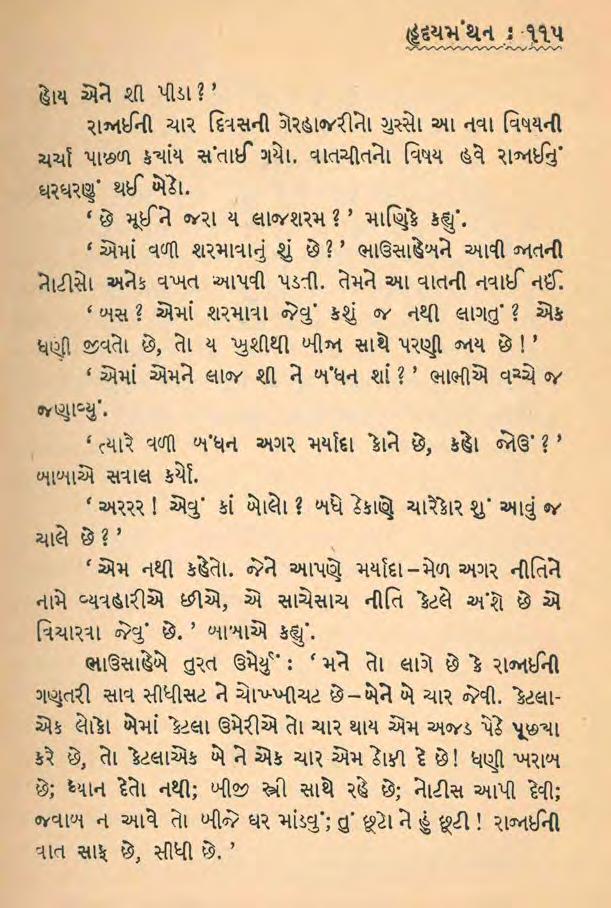 હૃદયમંથન : ૧૧૫
હોય એને શી પીડા ?’
રાજાઈની ચાર દિવસની ગેરહાજરીનો ગુસ્સો આ નવા વિષયની
ચર્ચા પાછળ કયાંય સંતાઈ ગયો. વાતચીતનો વિષય હવે રાજાઈનું
ઘરઘરણું થઈ બેઠો.
‘ છે મૂઈને જરા ય લાજશરમ ?’ માણિકે કહ્યું.
‘ એમાં વળી શરમાવાનું શું છે ?’ ભાઉસાહેબને આવી જાતની
નોટીસો અનેક વખત આપવી પડતી. તેમને આ વાતની નવાઈ નઈ.
‘ બસ ? એમાં શરમાવા જેવું કશું જ નથી લાગતું ? એક
ધણી જીવતો છે, તો ય ખુશીથી બીજા સાથે પરણી જાય છે !’
‘ એમાં એમને લાજ શી ને બંધન શાં ?’ ભાભીએ વચ્ચે જ
જણાવ્યું.
‘ ત્યારે વળી બંધન અગર મર્યાદા કોને છે, કહો જોઉં ?’
બાબાએ સવાલ કર્યો.
‘ અરરર ! એવું કાં બોલો ? બધે ઠેકાણે ચારેકાર શું આવું જ
ચાલે છે ?’
‘ એમ નથી કહેતો. જેને આપણે મર્યાદા–મેળ અગર નીતિને
નામે વ્યવહારીએ છીએ, એ સાચેસાચ નીતિ કેટલે અંશે છે એ
વિચારવા જેવું છે. ’ બાબાએ કહ્યું.
ભાઉસાહેબે તુરત ઉમેર્યું : ‘ મને તો લાગે છે કે રાજાઈની
ગણતરી સાવ સીધીસટ ને ચોખ્ખીચટ છે–બેને બે ચાર જેવી. કેટલા-
એક લોકો બેમાં કેટલા ઉમેરીએ તો ચાર થાય એમ અજડ પેઠે પૂછ્યા
કરે છે, તો કેટલાએક બે ને એક ચાર એમ ઠોકી દે છે ! ધણી ખરાબ
છે; ધ્યાન દેતો નથી; બીજી સ્ત્રી સાથે રહે છે; નોટીસ આપી દેવી;
જવાબ ન આવે તો બીજે ઘર માંડવું; તું છૂટો ને હું છૂટી ! રાજાઈની
વાત સાફ છે, સીધી છે. ’